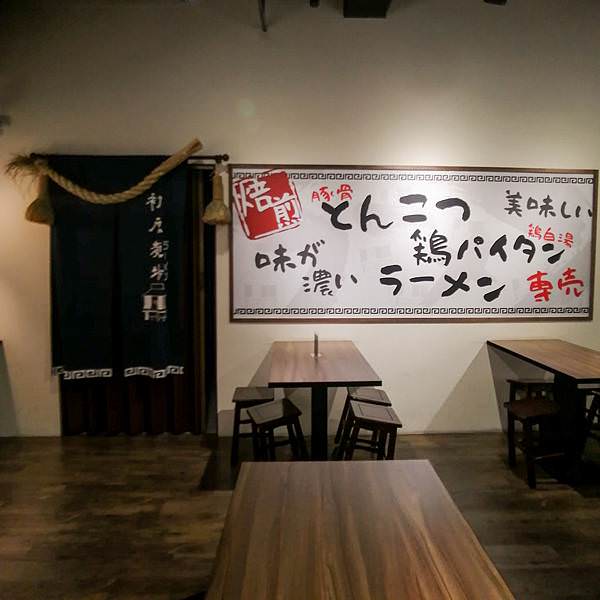 焙煎
豚骨
とんこつ
美味しい
鶏白湯
味が
濃い
鶏パイタン
ラーメン
専売